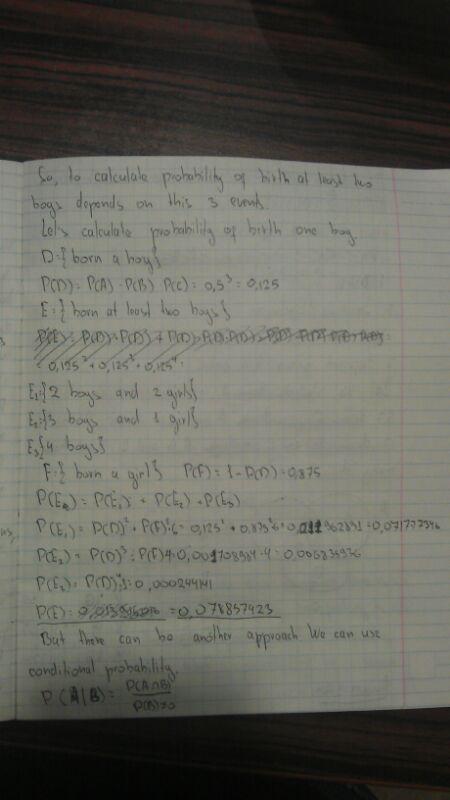 So, to calculate probability of birth at least two
boys depends on this 3 events.
Let's calculate probability of birth one boy
D:{born a boy}
P(D)= P(A)·P(B)·P(C)= 0,5³=0,125
E:{born at least two boys}
= 0,125²+0,125³+0,125⁴
E₁:{2 boys and 2 girls}
E₂:{3 boys and 1 girl}
E₃{4 boys}
F:{born a girl} P(F)=1-P(D)=0,875
P(E)= P(E₁)+P(E₂)+P(E₃)
P(E₁)= P(D)²·P(F)²·6= 0,125²·0,875²·6=0,011962891=0,071777346
P(E₂)= P(D)³·P(F)·4=0,001708984·4=0,006835936
P(E₃)=P(D)⁴·1=0,000244141
P(E)= =0,078857423
But there can be another approach We can use
conditional probability.
P(A|B)= P(A∩B)
P(B)>0